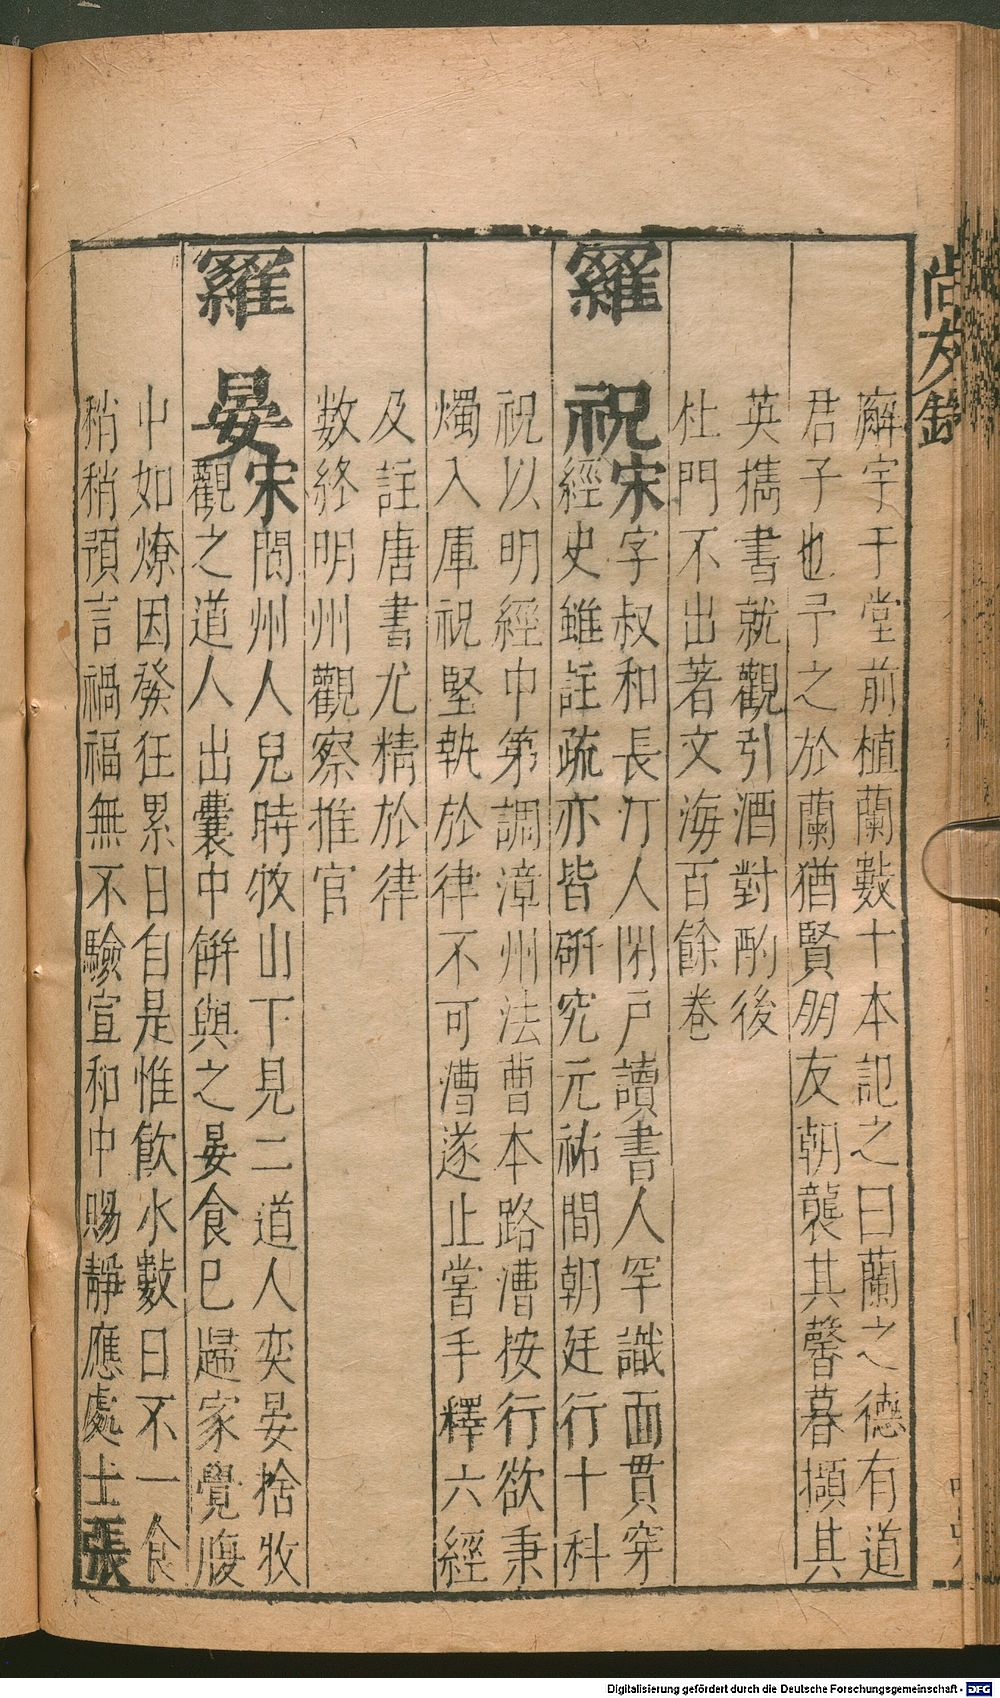 尚友錄
廨宇于堂前植蘭數十本記之曰蘭之德有道
君子也予之於蘭猶賢朋友朝襲其馨暮擷其
英携書就觀引酒對酌後
杜門不出著文海百餘卷
羅祝宋字叔和長汀人閉戶讀書人罕識面貫穿
經史雖註疏亦皆研究元祐間朝廷行十科
祝以明經中第調漳州法曹本路漕按行欲秉
燭入庫祝堅執於律不可漕遂止嘗手釋六經
及註唐書尤精於律
数終明州觀察推官
羅晏宋閬州人兒時牧山下見二道人奕晏捨牧
觀之道人出囊中餅與之晏食已歸家覺腹
中如燎因發狂累日自是惟飲水數日不一食
稍稍預言禍福無不驗宣和中賜靜應處士張
Digitalisierung gefördert durch die Deutsche Forschungsgemeinschaft - DFG